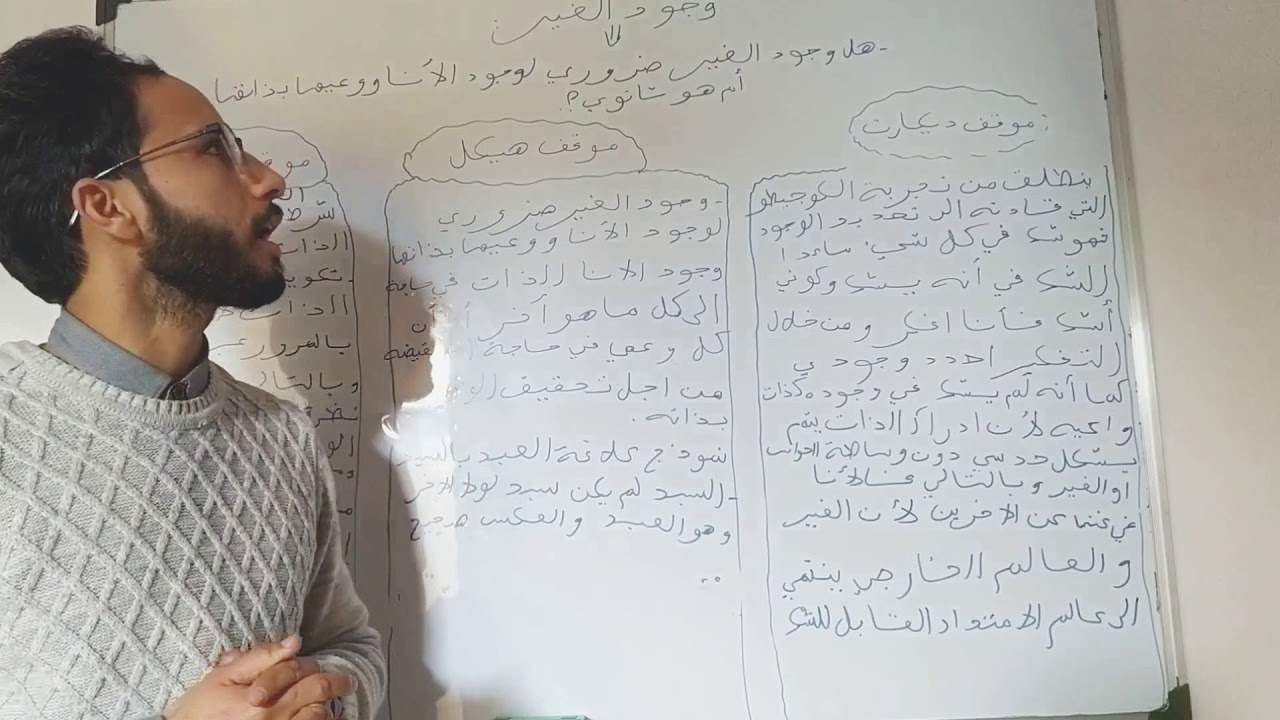 وجود الغير:
- هل وجود الغير ضروري لوجود الأنا ووعيها بذاتها
أم هو ثانوي؟
موقف ديكارت:
ينطلق من تجربة الكوجيطو
التي قادته الى تحديد الوجود
فهو شك في كل شيء ماعدا
الشك في أنه يشك وكوني
أشك فأنا افكر ومن خلال
التفكير احدد وجودي
كما أنه لم يشك في وجوده كذات
واعيه لأن ادراك الذات يتم
بشكل حدسي دون وساطة الحواس
او الغير وبالتالي فالأنا
في غنا عن الاخرين لأن الغير
والعالم الخارجي ينتمي
الى عالم الامتداد القابل للشك
موقف هيكل
- وجود الغير ضروري
لوجود الأنا ووعيها بذاتها
وجود الانا الذات في حاجة
الى كل ما هو آخر أي أن
كل وعي في حاجة نقيضه
من اجل تحقيق الوعي
بذاته.
نموذج علاقة العبد بالسيد
- السيد لم يكن سيد لولا الاخر
وهو العبد والعكس صحيح
..
موق
شر
الذات
- تكوي
الذات
بالمرور عبر
وبالتال
نظر
الو